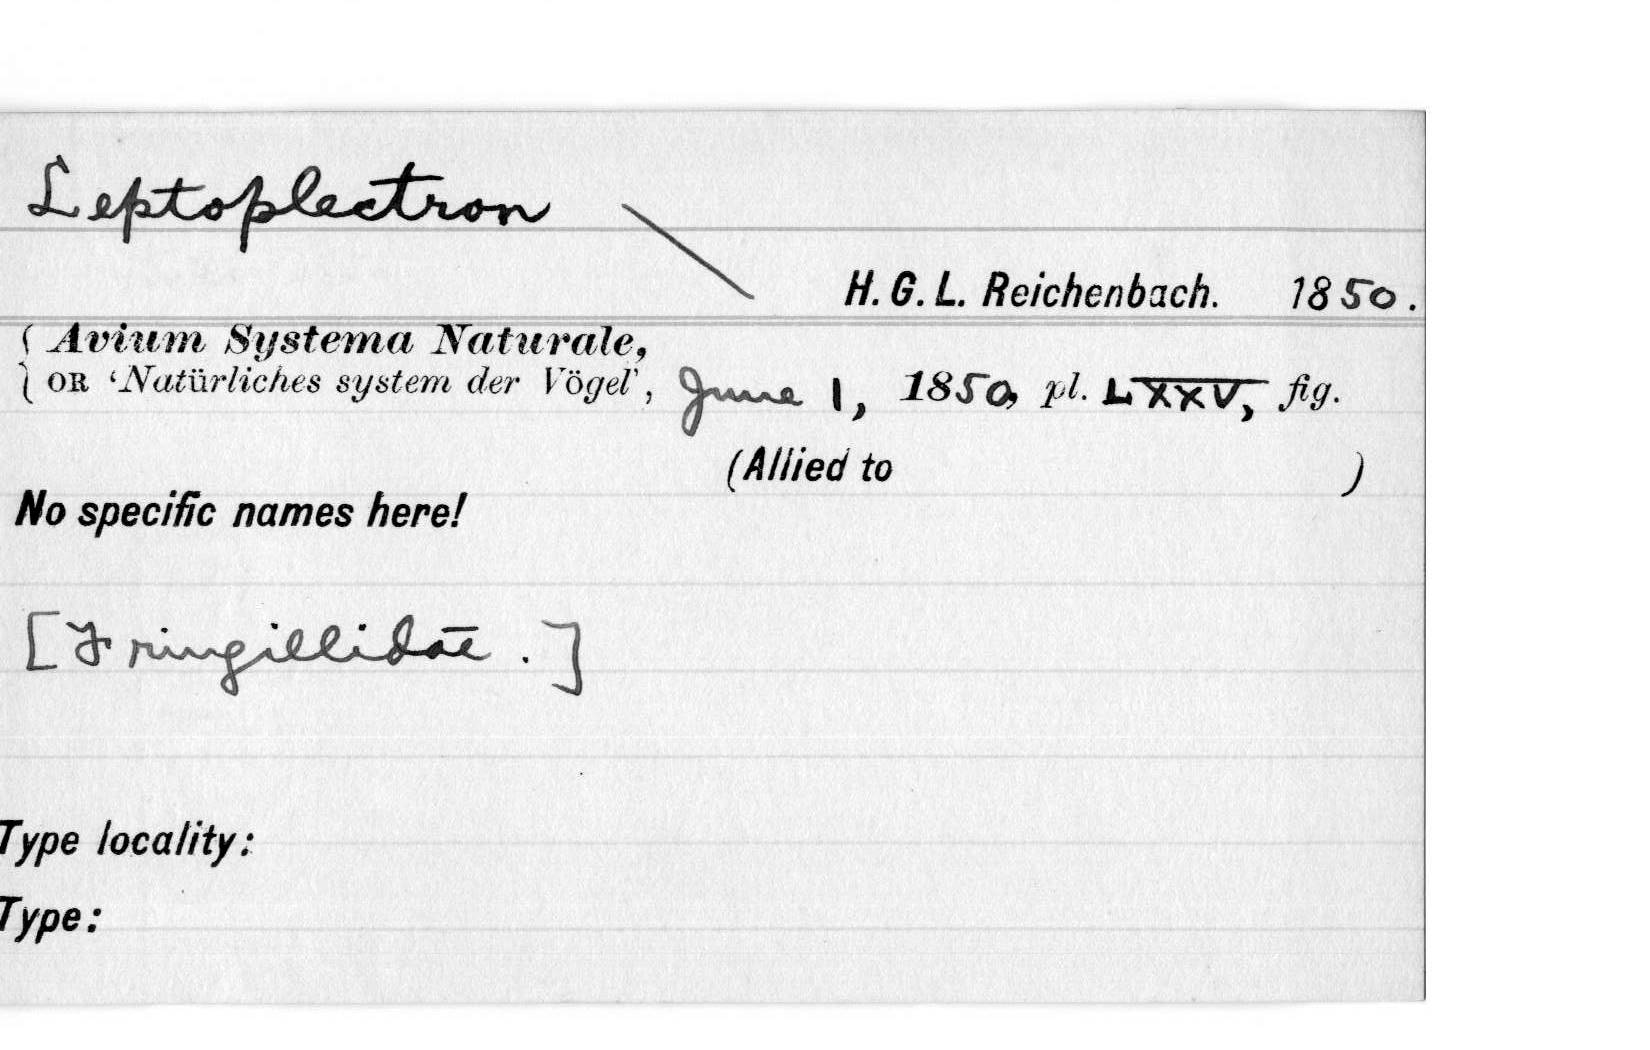 Leptoplectron
H. G. L. Reichenbach. 1850.
{ Avium Systema Naturale,
OR 'Natürliches system der Vögel', June 1, 1850, pl. LXXV, fig.
(Allied to )
No specific names here!
[Fringillidae.]
Type locality:
Type: